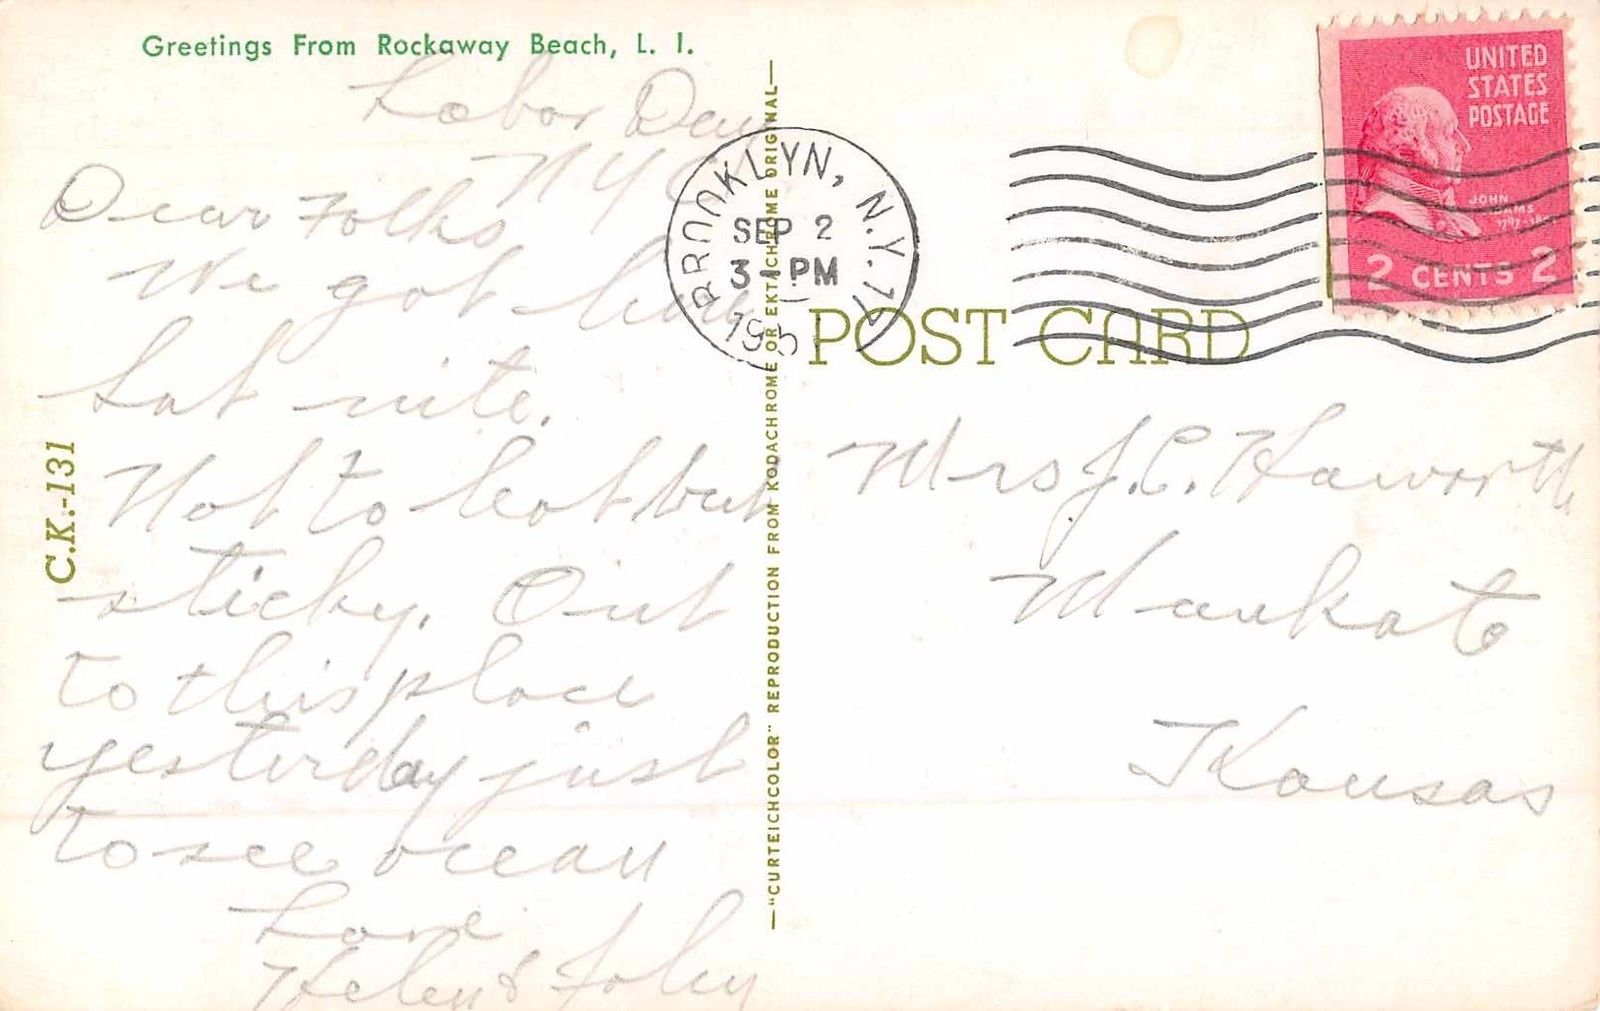 Greetings From Rockaway Beach, L. I.
Labor Day
N Y C
Dear Folks
We got here
Sat nite.
Not to hot but
sticky. Out
to this place
yesterday just
to see ocean
Love
Helen & John
C.K.-131
—"CURTEICHCOLOR" REPRODUCTION FROM KODACHROME OR EKTACHROME ORIGINAL—
BROOKLYN, N.Y.
SEP 2
3 PM
195
POST CARD
UNITED
STATES
POSTAGE
JOHN
ADAMS
2 CENTS 2
Mrs J.C. Haworth
Mankato
Kansas